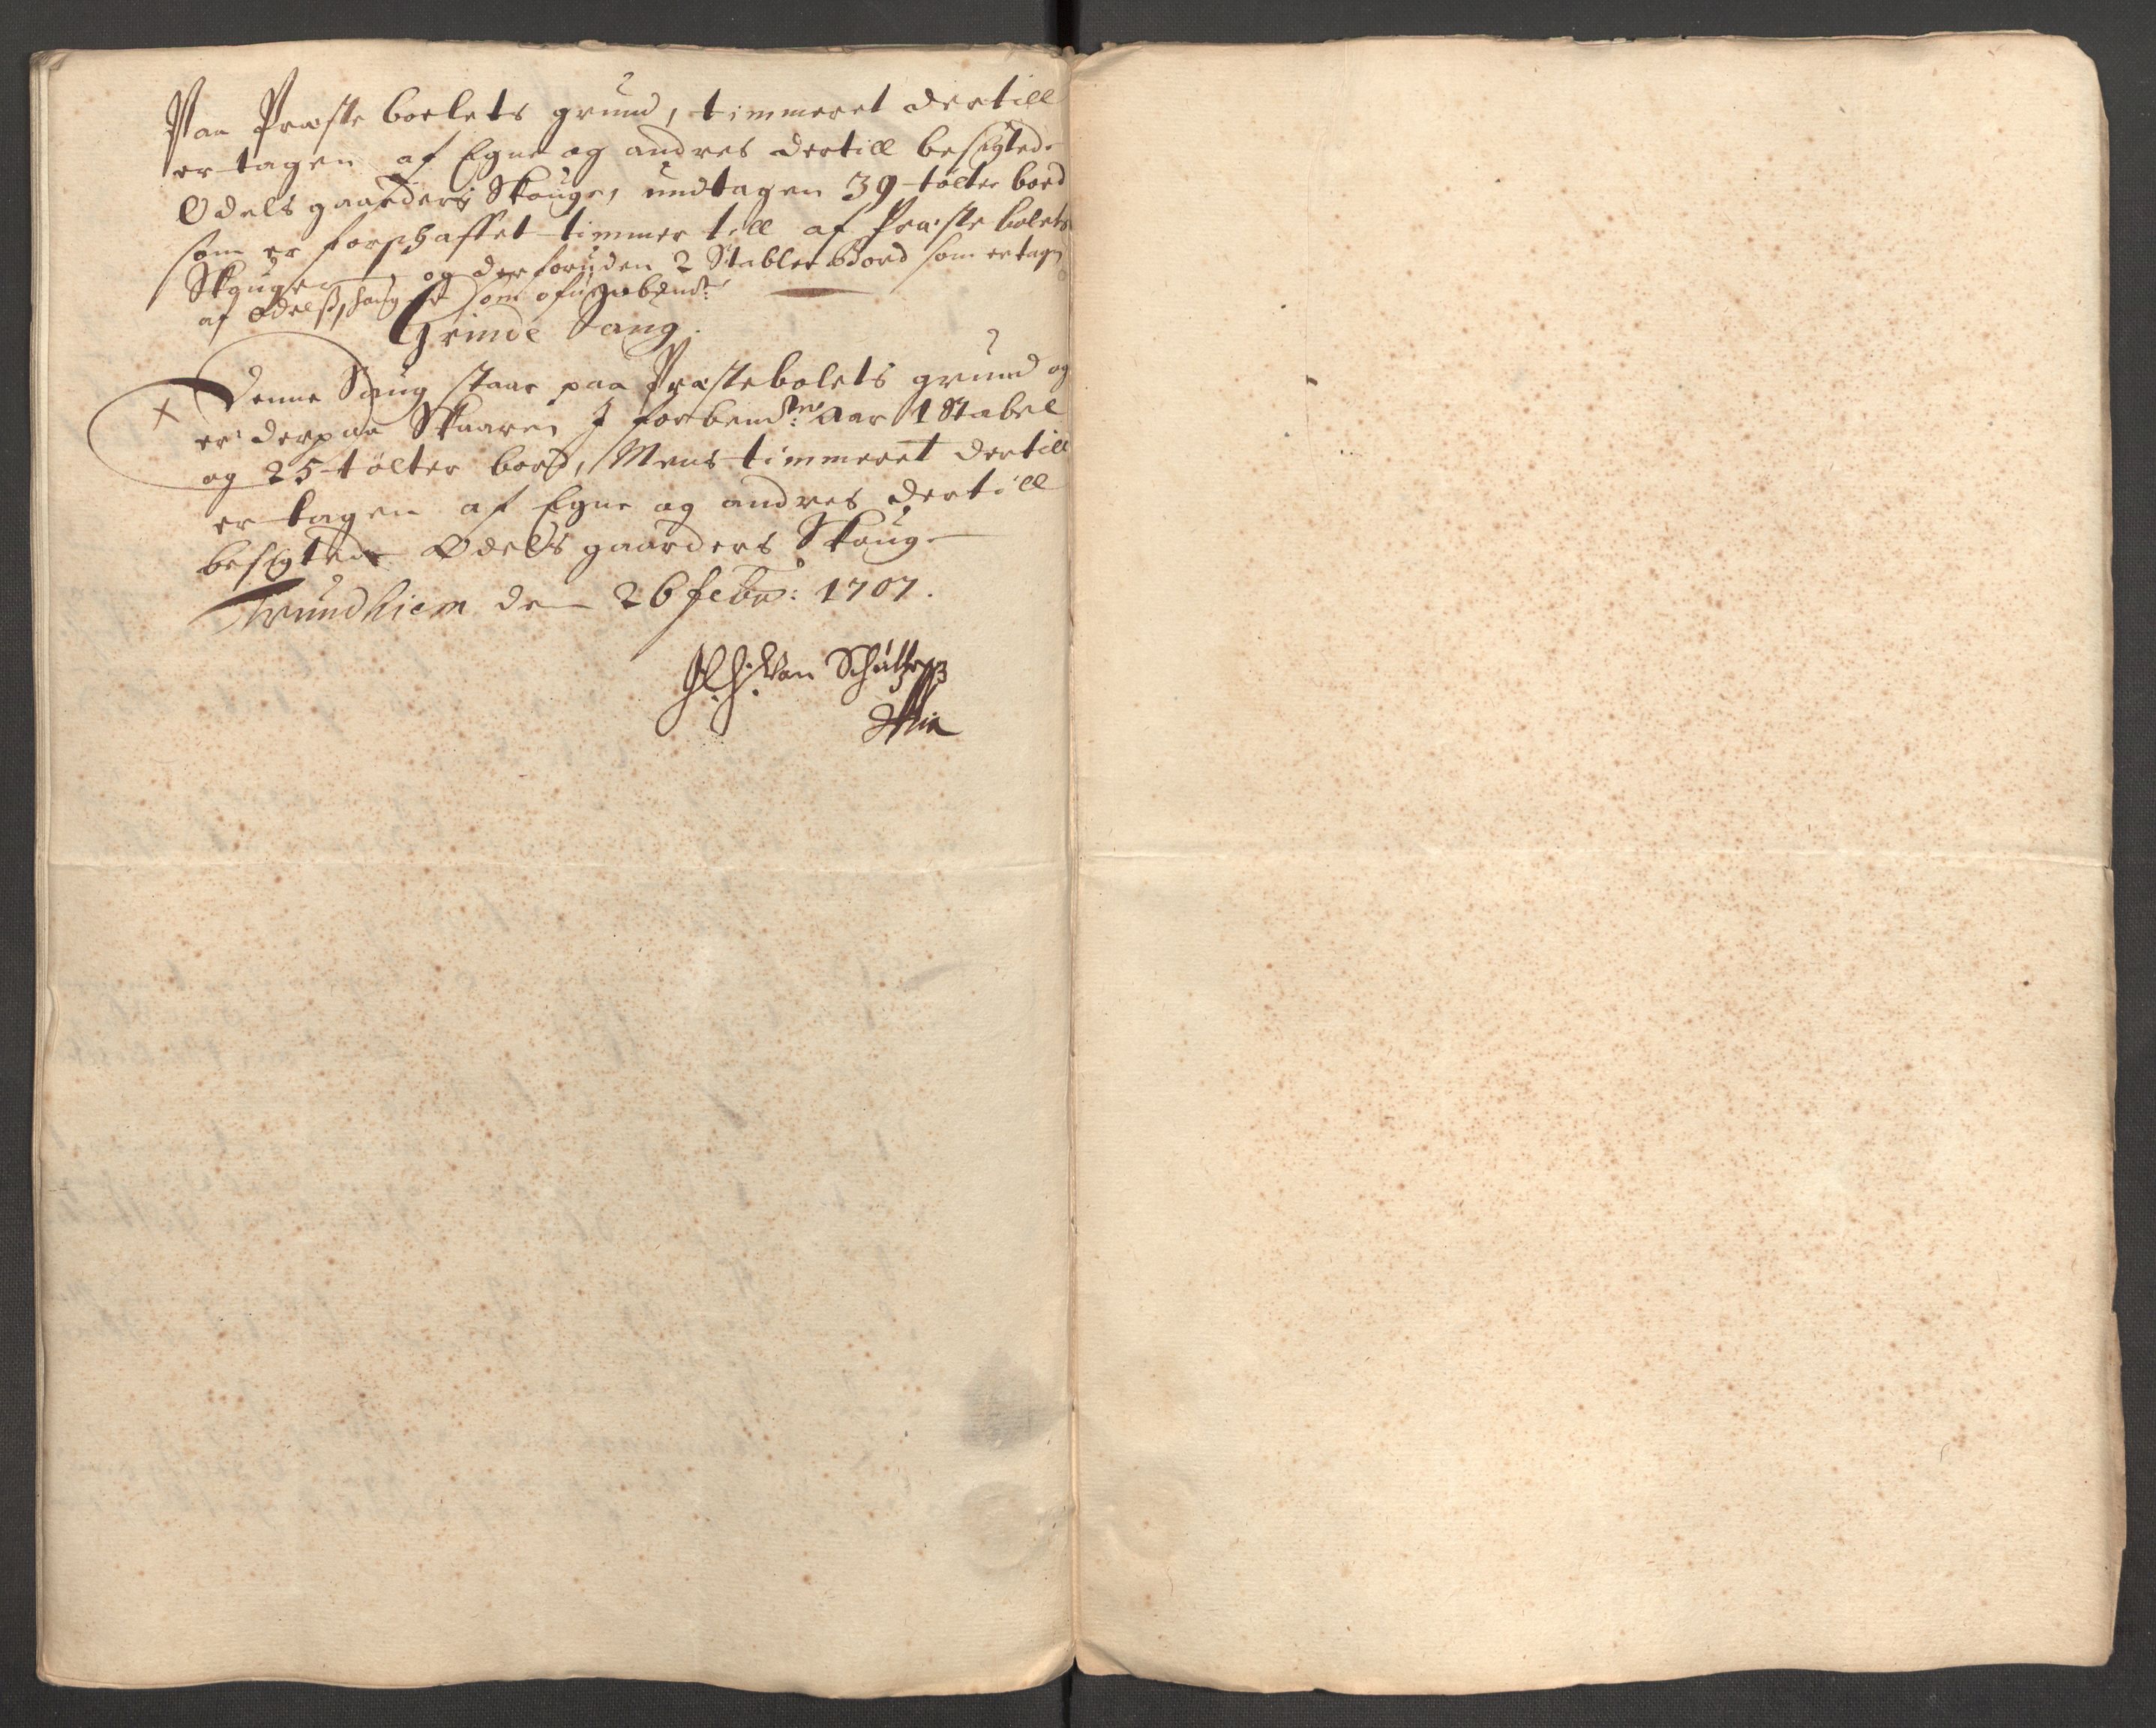 Paa Præste boelets grund, timmeret dertill
er tagen af Egne og andres dertill besigtede
Odels gaarders Skouge, undtagen 39 tolter bord
som er forschaffet timmer till af Præste bolets
Skouger og der foruden 2 Stabler Bord som er tagen
af Odelss som ofvenbemt:
Grinde Saug.
Denne Saug staar paa Præstebolets grund og
er derpaa Skaaren I forbemte: Aar 1 Stabel
og 25 tolter bord, Mens timmeret dertill
er tagen af Egne og andres dertill
besigtede Odels gaarders Skoug
Trundhiem den 26 Febr: 1707.
H. H. Van Schultz